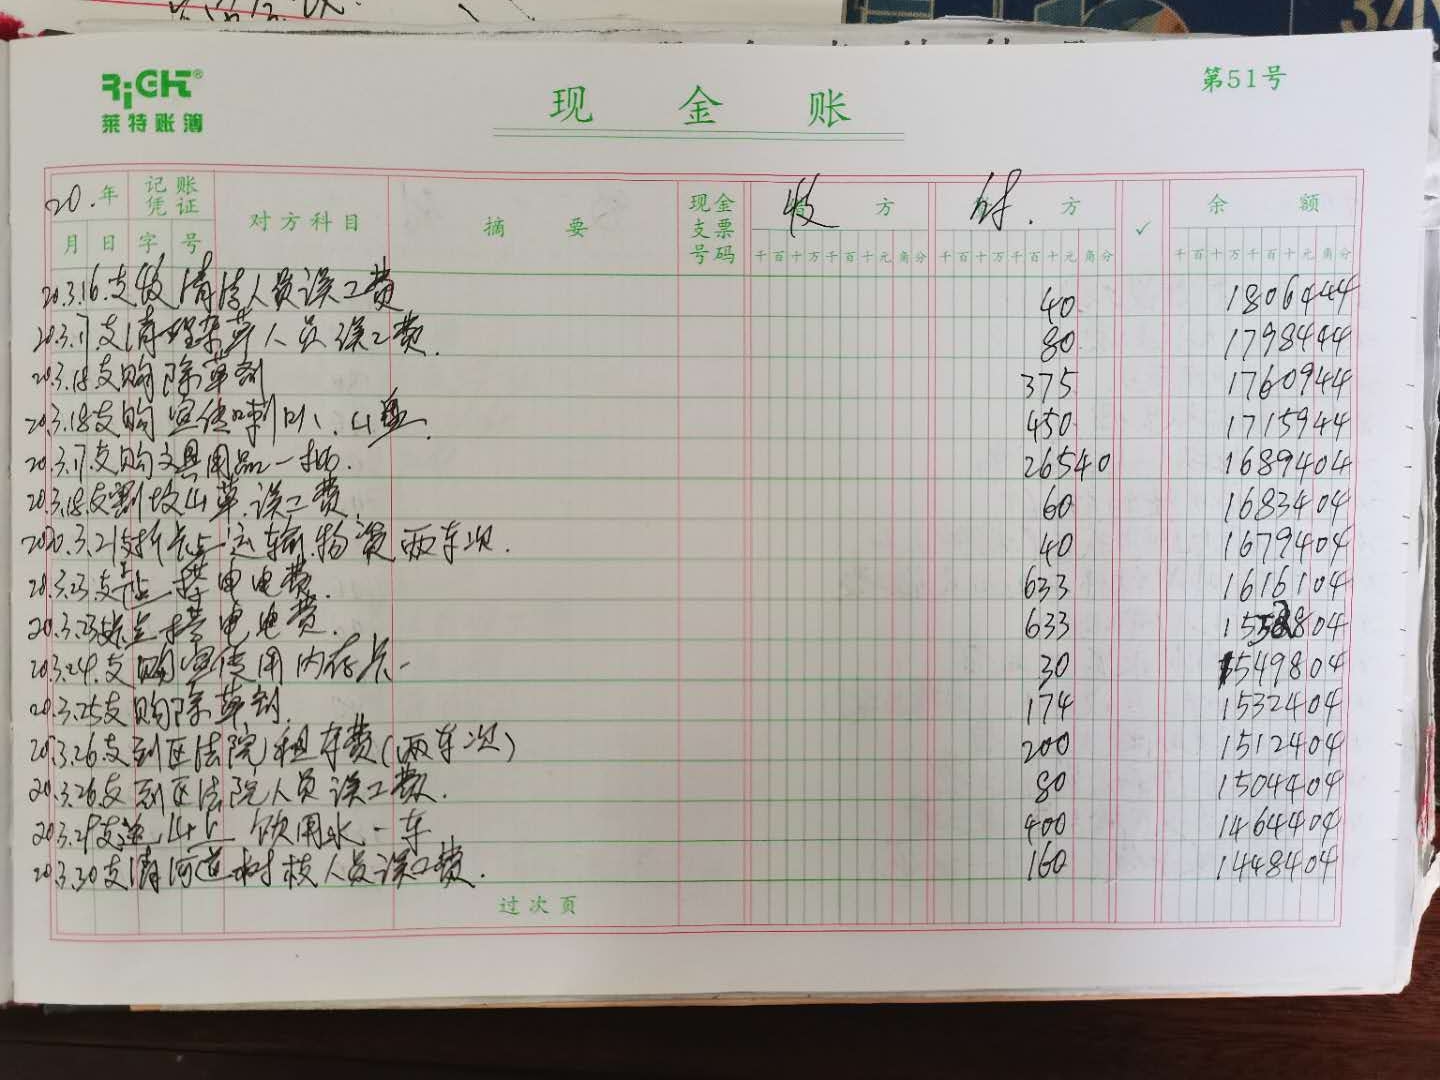 RiGHT®
莱特账簿
现金账
第51号
20.年 记账凭证 对方科目 摘要 现金支票号码 收方 付.方 ✓ 余额
月 日 字 号 千百十万千百十元角分 千百十万千百十元角分 千百十万千百十元角分
20.3.16.支 清 人员误工费 40 1806444
20.3.17.支清理杂草人员误工费. 80. 1798444
20.3.18支购除草剂 375 1760944
20.3.18支购宣传喇叭、U盘. 450 1715944
20.3.17.支购文具用品一批. 26540 1689404
20.3.18.支割坟山草.误工费. 60 1683404
2020.3.21支 运输物资两车次. 40 1679404
20.3.23支 搭电电费. 633 1616104
20.3.23支 搭电电费. 633 1552804
20.3.24.支购宣传用内存卡 30 1549804
20.3.25支购除草剂. 174 1532404
20.3.26.支到区法院租车费(两车次) 200 1512404
20.3.26.支到区法院人员误工费. 80 1504404
20.3.29支送山上饮用水一车 400 1464404
20.3.30支清河道树枝人员误工费. 160 1448404
过次页